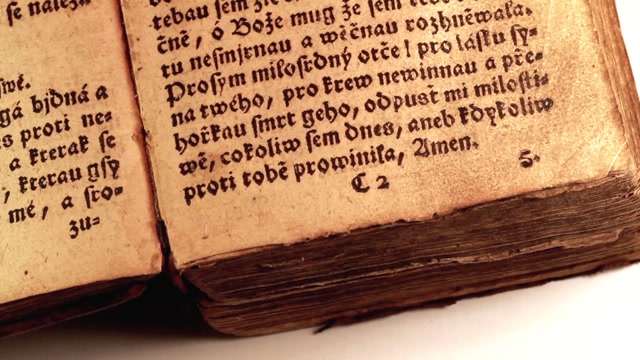 se náleží
swé.
gá bjdná a
s proti ne=
, a kterak se
, kterau gsy
mé, a sro=
zu=
tebau sem
čně, ó Bože mug že sem tebe
tu nesmjrnau a wěčnau rozhněwala.
Prosym milosrdný otče! pro lásku sy=
na twého, pro krew newinnau a pře=
hořkau smrt geho, odpusť mi milosti=
wě, cokoliw sem dnes, aneb kdykoliw
proti tobě prowinila, Amen.
C 2
5.